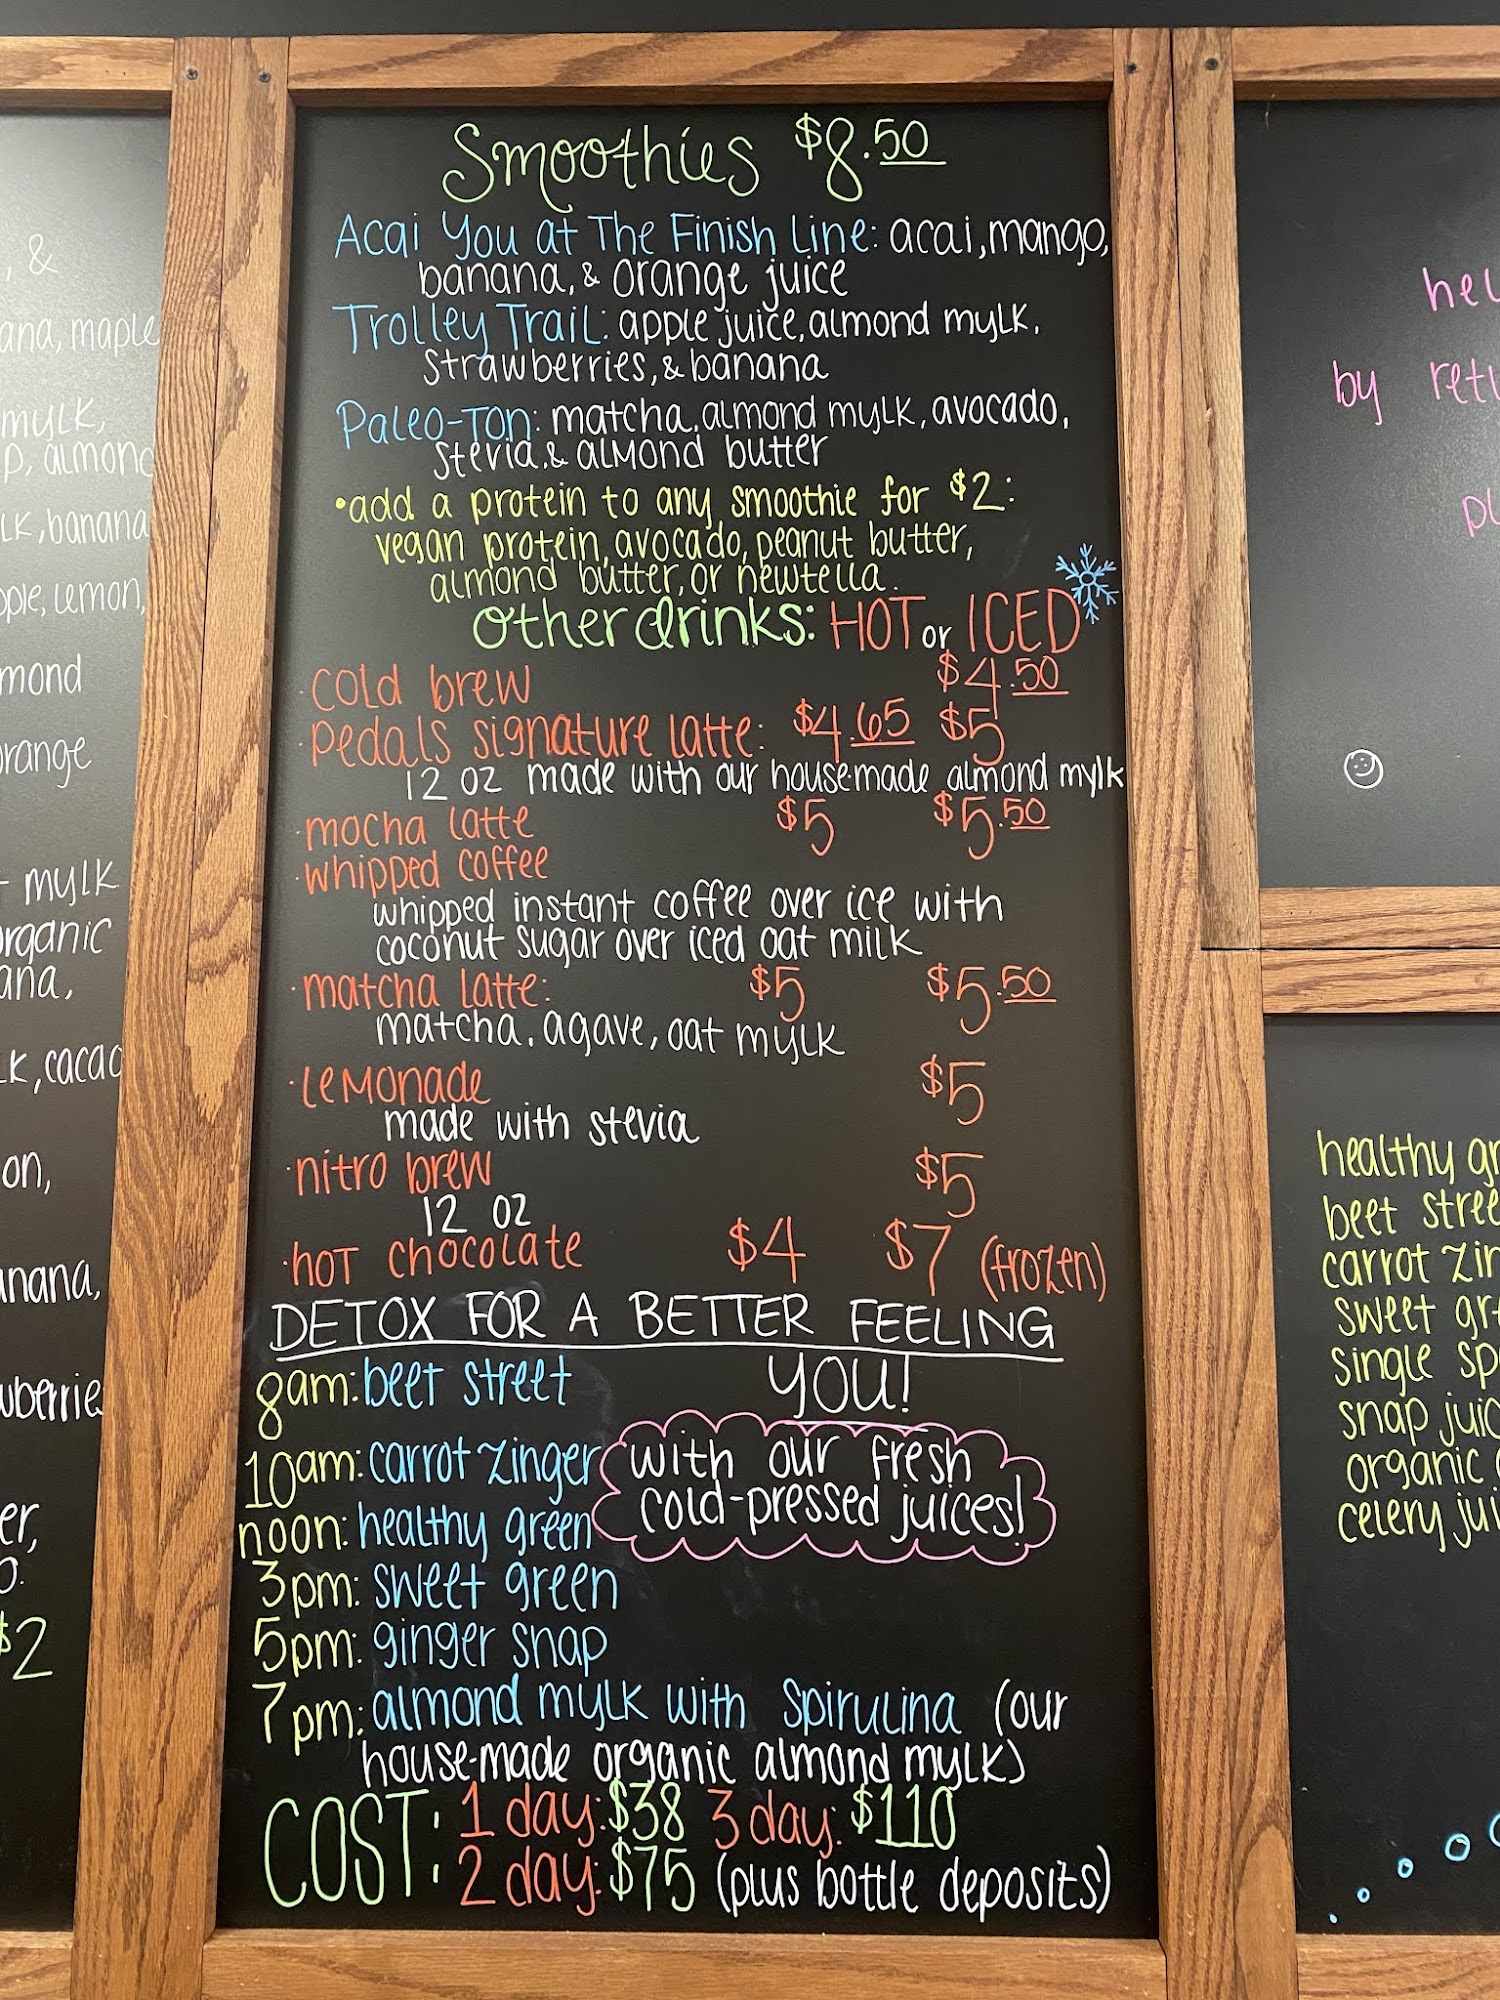 , &
ana, maple
mylk,
p, almond
lk, banana
ople, lemon,
mond
orange
mylk
organic
ana,
lk, cacao
on,
anana,
wberries
er,
$2
Smoothies $8.50
Acai You at The Finish Line: acai, mango,
banana, & orange juice
Trolley Trail: apple juice, almond mylk,
strawberries, & banana
Paleo-Ton: matcha, almond mylk, avocado,
stevia, & almond butter
•add a protein to any smoothie for $2:
vegan protein, avocado, peanut butter,
almond butter, or newtella.
other drinks: HOT or ICED
·cold brew $4.50
·pedals signature latte: $4.65 $5
12 oz made with our house-made almond mylk
·mocha latte $5 $5.50
·whipped coffee
whipped instant coffee over ice with
coconut sugar over iced oat milk
·matcha latte: $5 $5.50
matcha, agave, oat mylk
·lemonade $5
made with stevia
·nitro brew $5
12 oz
·hot chocolate $4 $7 (frozen)
DETOX FOR A BETTER FEELING
YOU!
8am: beet street
10am: carrot zinger
noon: healthy green
with our fresh
cold-pressed juices!
3pm: sweet green
5pm: ginger snap
7pm: almond mylk with spirulina (our
house-made organic almond mylk)
COST: 1 day: $38 3 day: $110
2 day: $75 (plus bottle deposits)
hel
by retu
pl
healthy gr
beet stree
carrot zin
sweet gr
single sp
snap juic
organic
celery jui